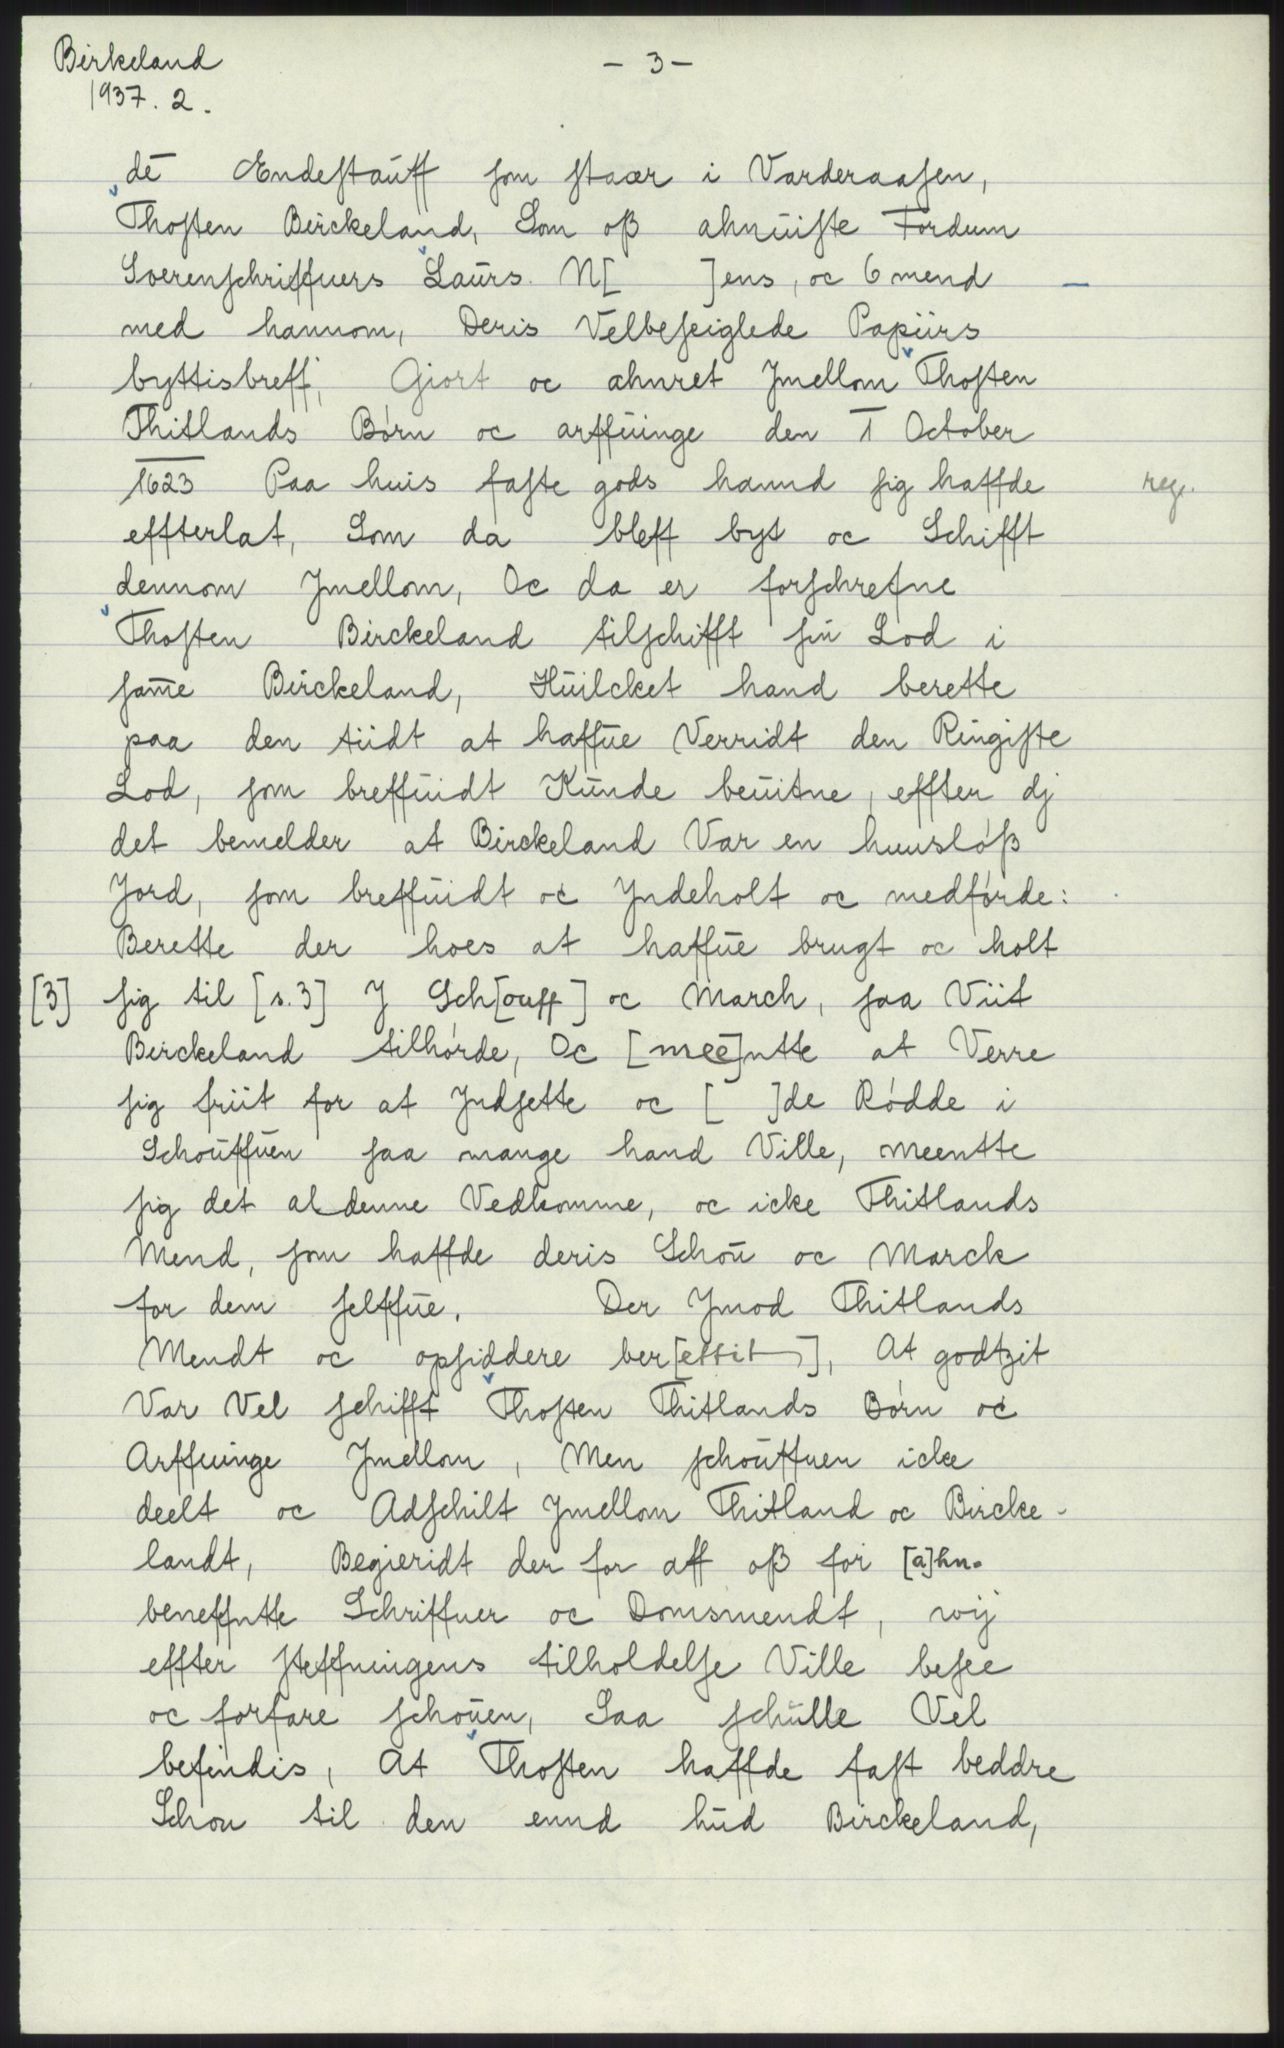 Birkeland
1937. 2.
- 3 -
dē Endestauff som staar i Varderaasen,
Thosten Birckeland, Som oß ahnuiste Fordum
Soerenschriffuers Laurs. N[ ]ens, oc 6 mend
med hannom, Deris Velbeseiglede Papiirs
byttisbreff, Giort oc ahnret Jmellom Thosten
Thitlands Børn oc arffuinge den 1 October
1623 Paa huis faste gods hannd sig haffde
reg.
effterlat, Som da bleff byt oc Schifft
dennom Jmellom, Oc da er forschrefne
Thosten Birckeland tilschifft sin Lod i
same Birckeland, Huilcket hand berette
paa den tiidt at haffue Verridt den Ringiste
Lod, som breffuidt Kunde beuitne, effter dj
det bemelder at Birckeland Var en huusløß
Jord, som breffuidt oc Jndeholt oc medførde:
Berette der hoes at haffue brugt oc holt
[3] sig til [s. 3] J Sch[ouff] oc March, saa Viit
Birckeland tilhørde, Oc [mee]ntte at Verre
sig friit for at Jndsette oc [ ]de Rødde i
Schouffuen saa mange hand Ville, meentte
sig det al denne Vedkomme, oc icke Thitlands
Mend, som haffde deris Schou oc Marck
for dem selffue. Der Jmod Thitlands
Mendt oc opsiddere ber[ettit], At godtzit
Var Vel schifft Thosten Thitlands Børn oc
Arffuinge Jmellom, Men schouffuen icke
deelt oc Adschilt Jmellom Thitland oc Bircke-
landt, Begieridt der for aff oß for [a]hn-
beneffntte Schriffuer oc Domsmendt, wij
effter steffningens tilholdelse Ville besee
oc forfare schouen, Saa schulle Vel
befindis, At Thosten haffde fast beddre
Schou til den ennd hud Birckeland,